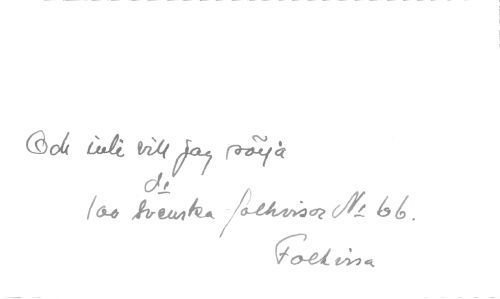 Och inte vill jag sörja
d:o
100 Svenska folkvisor No 66.
Folkvisa